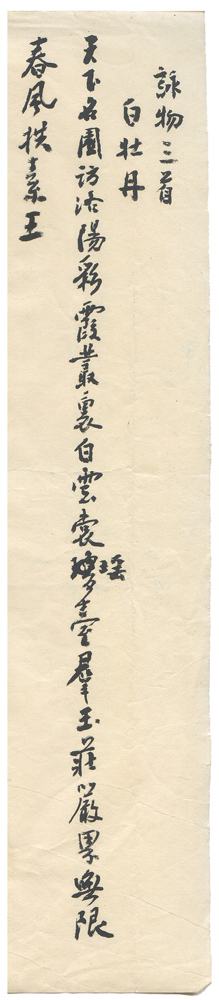 詠物三首
白牡丹
天下名園訪洛陽彩霞叢裏白雲裳瑤臺羣玉莊嚴界無限
春風拱素王